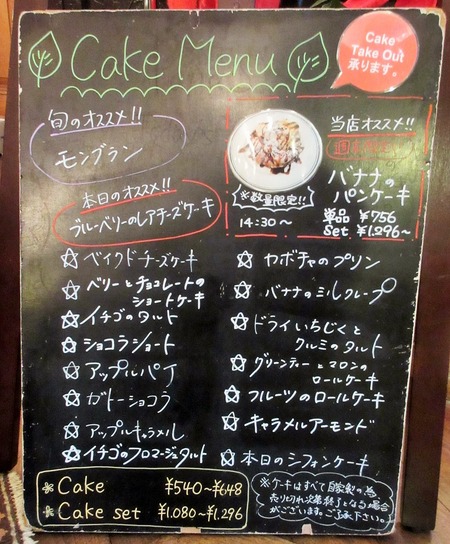 Cake Menu
Cake
Take Out
承ります。
旬のオススメ!!
モンブラン
本日のオススメ!!
ブルーベリーのレアチーズケーキ
当店オススメ!!
バナナの
パンケーキ
単品 ¥756
Set ¥1,296~
※数量限定!!
14:30~
☆ ベイクドチーズケーキ
☆ ベリーとチョコレートの
ショートケーキ
☆ イチゴのタルト
☆ ショコラショート
☆ アップルパイ
☆ ガトーショコラ
☆ アップルキャラメル
☆ イチゴのフロマージュタルト
☆ カボチャのプリン
☆ バナナのミルクレープ
☆ ドライいちじくと
クルミのタルト
☆ グリーンティーとマロンの
ロールケーキ
☆ フルーツのロールケーキ
☆ キャラメルアーモンド
☆ 本日のシフォンケーキ
※ Cake ¥540~¥648
※ Cake set ¥1,080~¥1,296
※ケーキはすべて自家製の為
売り切れ次第終了となる場合
がございます。ご了承下さい。